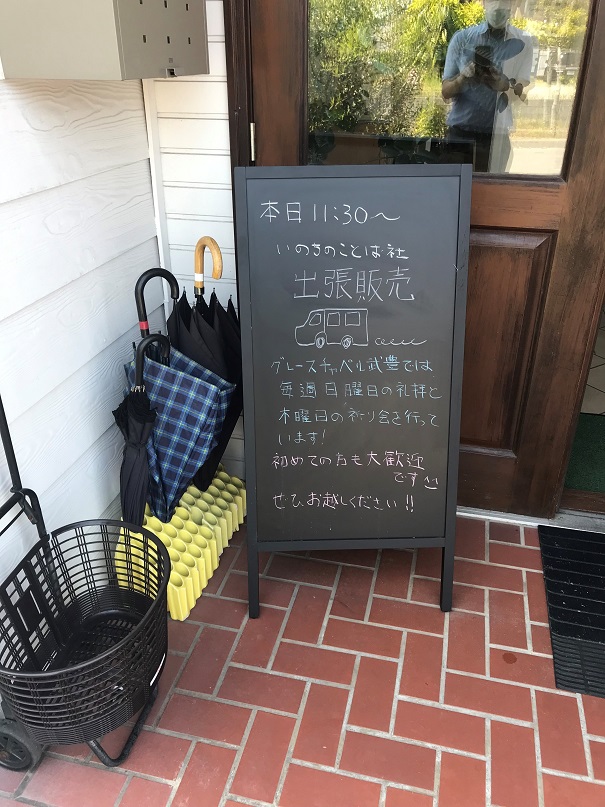 本日11:30〜
いのちのことば社
出張販売
グレースチャペル武豊では
毎週日曜日の礼拝と
木曜日の祈り会を行って
います!
初めての方も大歓迎
です
ぜひお越しください!!